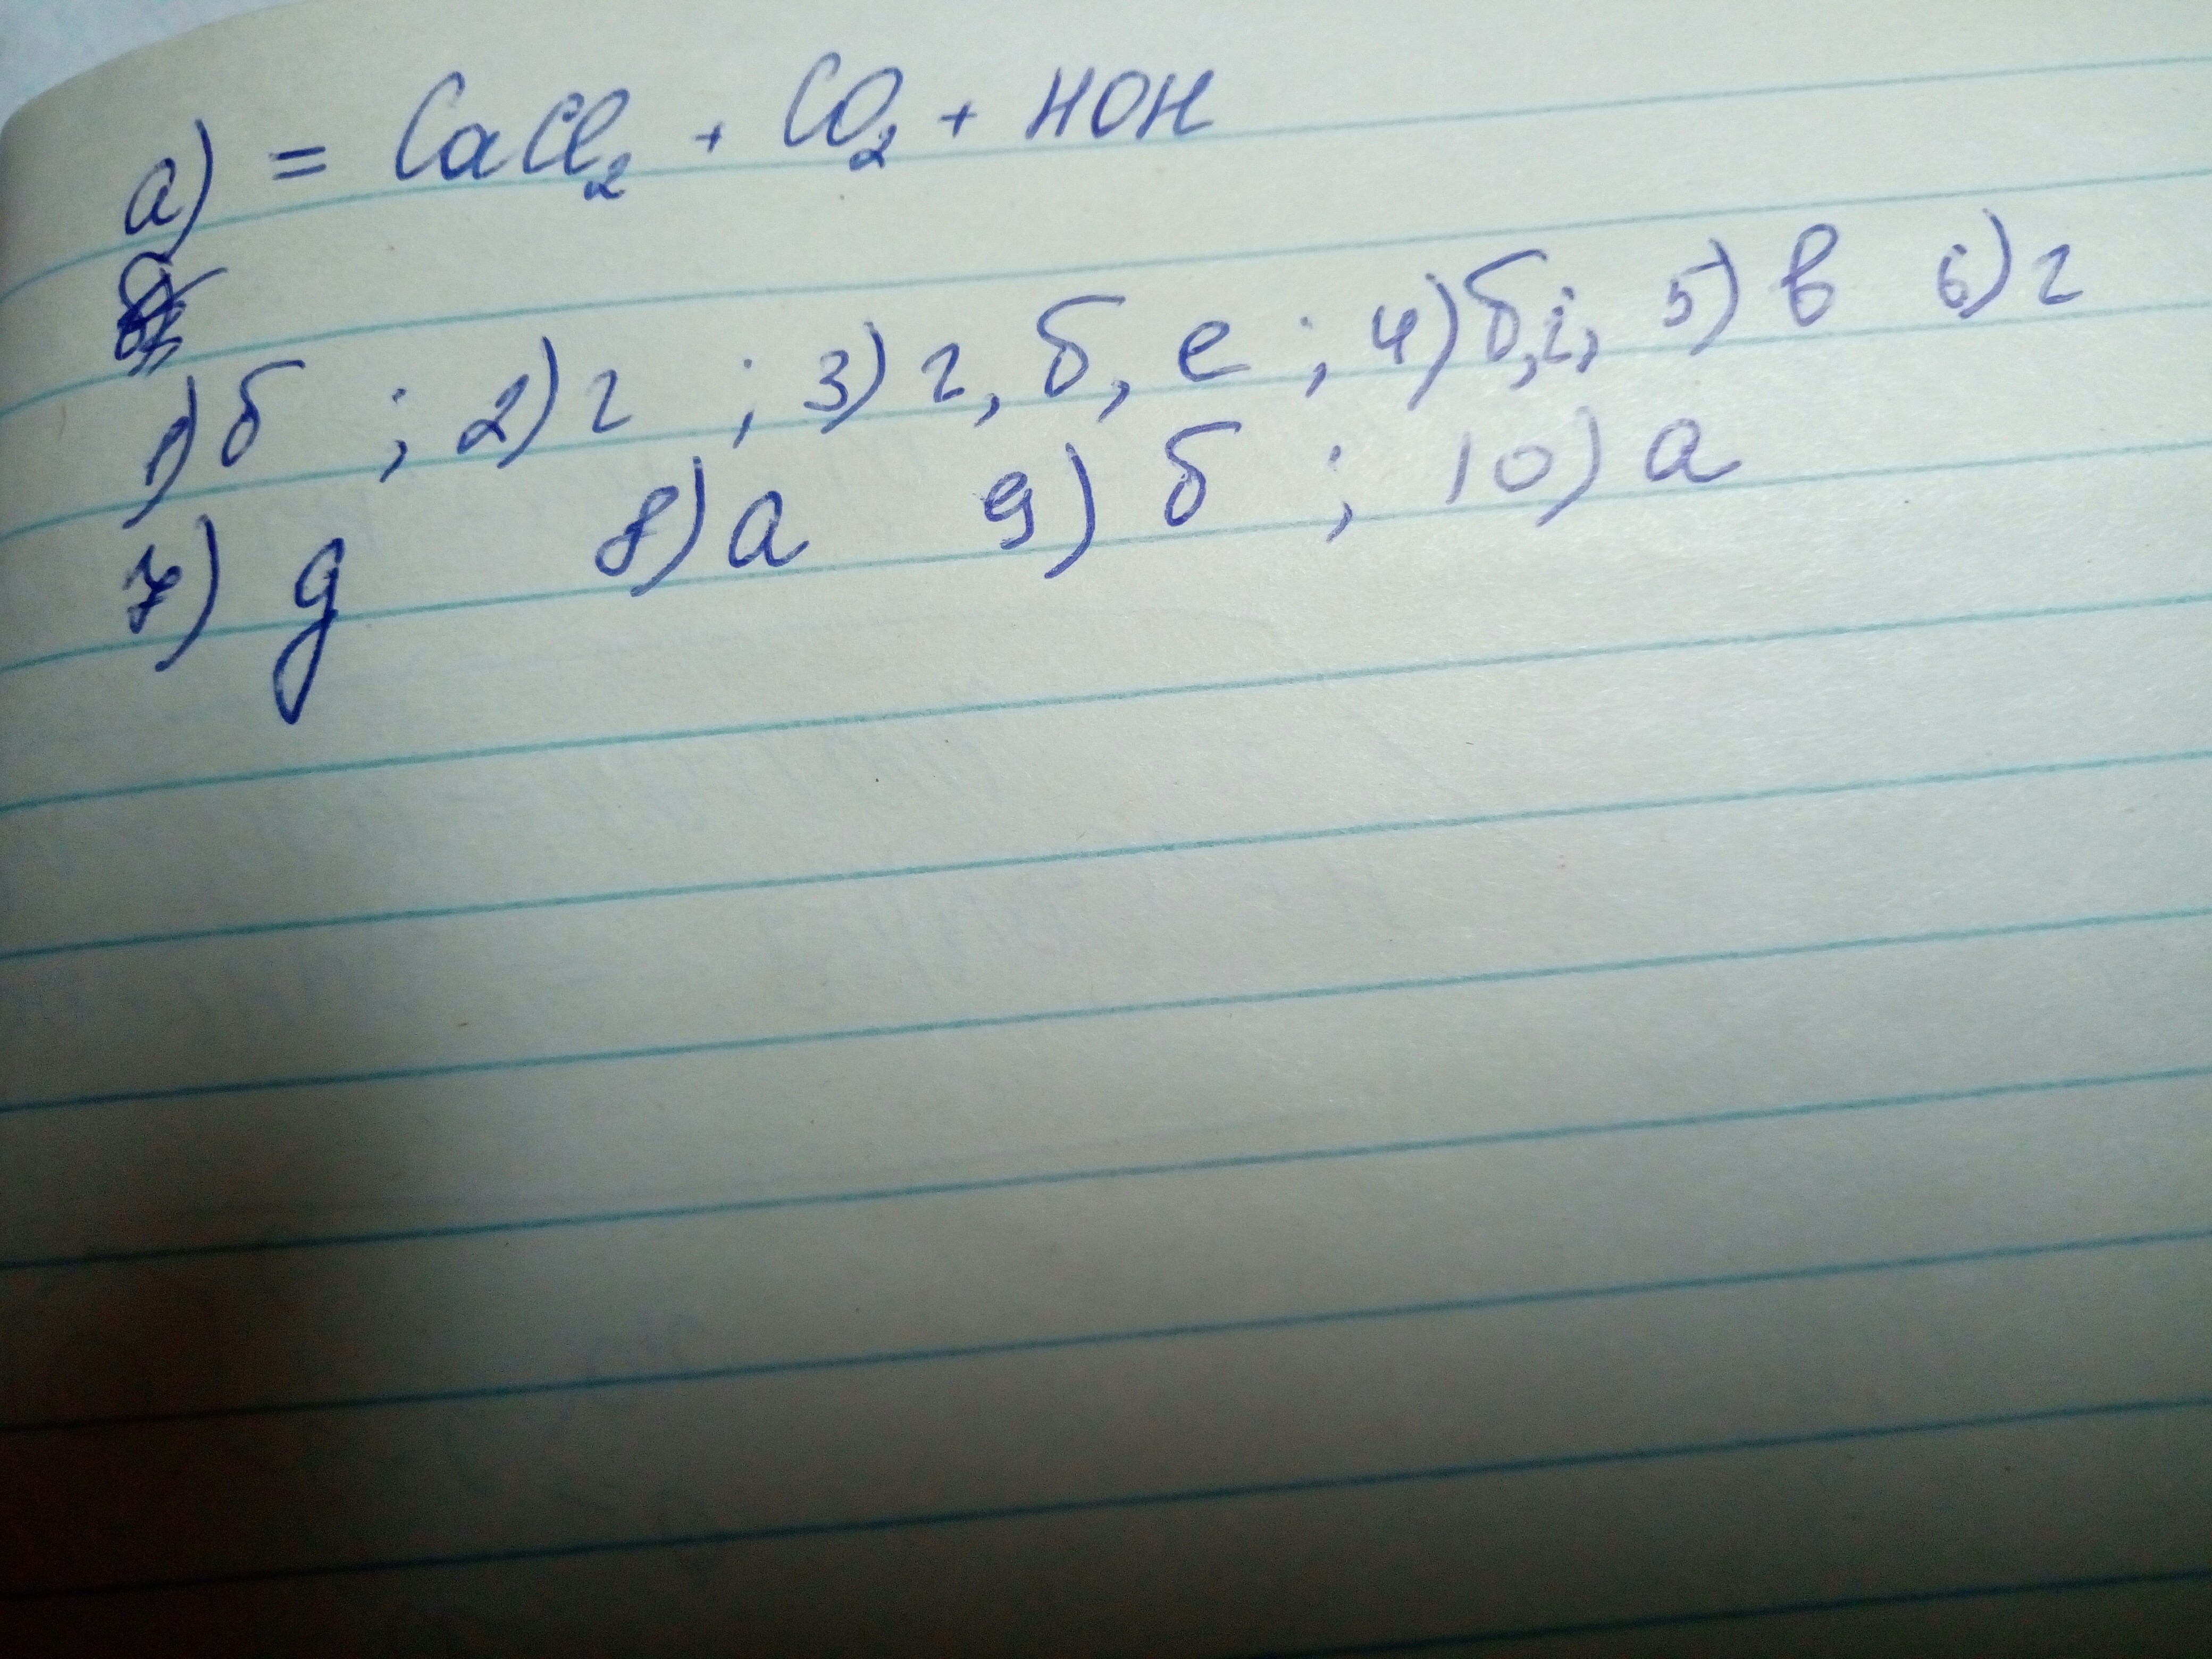 а) = CaCl₂ + CO₂ + HOH
1) б ; 2) г ; 3) г, б, е ; 4) б, і, 5) в 6) г
7) д 8) а 9) б ; 10) а